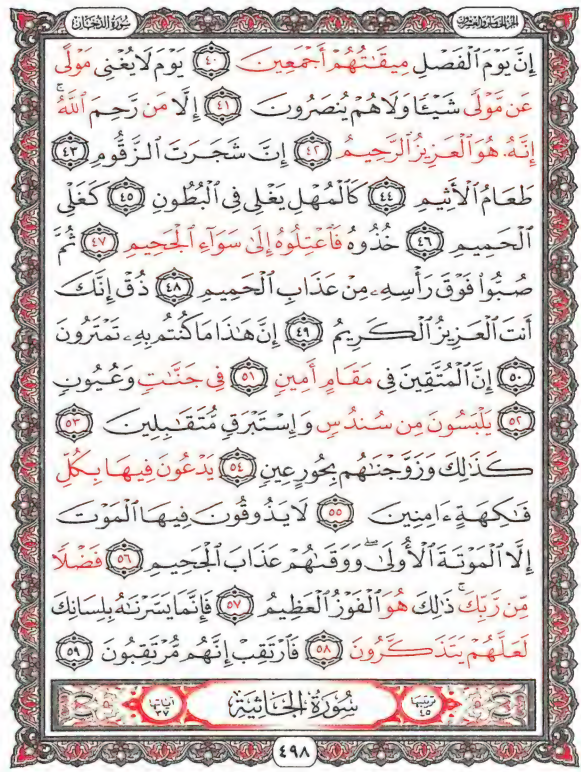 سُورَةُ الدُّخَانِ
الجُزءُ الخَامِسُ وَالعِشْرُونَ
إِنَّ يَوْمَ ٱلْفَصْلِ مِيقَٰتُهُمْ أَجْمَعِينَ ٤٠ يَوْمَ لَا يُغْنِى مَوْلًى
عَن مَّوْلًى شَيْـًٔا وَلَا هُمْ يُنصَرُونَ ٤١ إِلَّا مَن رَّحِمَ ٱللَّهُۚ
إِنَّهُۥ هُوَ ٱلْعَزِيزُ ٱلرَّحِيمُ ٤٢ إِنَّ شَجَرَتَ ٱلزَّقُّومِ ٤٣
طَعَامُ ٱلْأَثِيمِ ٤٤ كَٱلْمُهْلِ يَغْلِى فِى ٱلْبُطُونِ ٤٥ كَغَلْىِ
ٱلْحَمِيمِ ٤٦ خُذُوهُ فَٱعْتِلُوهُ إِلَىٰ سَوَآءِ ٱلْجَحِيمِ ٤٧ ثُمَّ
صُبُّوا۟ فَوْقَ رَأْسِهِۦ مِنْ عَذَابِ ٱلْحَمِيمِ ٤٨ ذُقْ إِنَّكَ
أَنتَ ٱلْعَزِيزُ ٱلْكَرِيمُ ٤٩ إِنَّ هَٰذَا مَا كُنتُم بِهِۦ تَمْتَرُونَ
٥٠ إِنَّ ٱلْمُتَّقِينَ فِى مَقَامٍ أَمِينٍ ٥١ فِى جَنَّٰتٍ وَعُيُونٍ
٥٢ يَلْبَسُونَ مِن سُندُسٍ وَإِسْتَبْرَقٍ مُّتَقَٰبِلِينَ ٥٣
كَذَٰلِكَ وَزَوَّجْنَٰهُم بِحُورٍ عِينٍ ٥٤ يَدْعُونَ فِيهَا بِكُلِّ
فَٰكِهَةٍ ءَامِنِينَ ٥٥ لَا يَذُوقُونَ فِيهَا ٱلْمَوْتَ
إِلَّا ٱلْمَوْتَةَ ٱلْأُولَىٰۖ وَوَقَىٰهُمْ عَذَابَ ٱلْجَحِيمِ ٥٦ فَضْلًا
مِّن رَّبِّكَۚ ذَٰلِكَ هُوَ ٱلْفَوْزُ ٱلْعَظِيمُ ٥٧ فَإِنَّمَا يَسَّرْنَٰهُ بِلِسَانِكَ
لَعَلَّهُمْ يَتَذَكَّرُونَ ٥٨ فَٱرْتَقِبْ إِنَّهُم مُّرْتَقِبُونَ ٥٩
ترتيبها ٤٥ سُورَةُ الجَاثِيَةِ آياتها ٣٧
٤٩٨